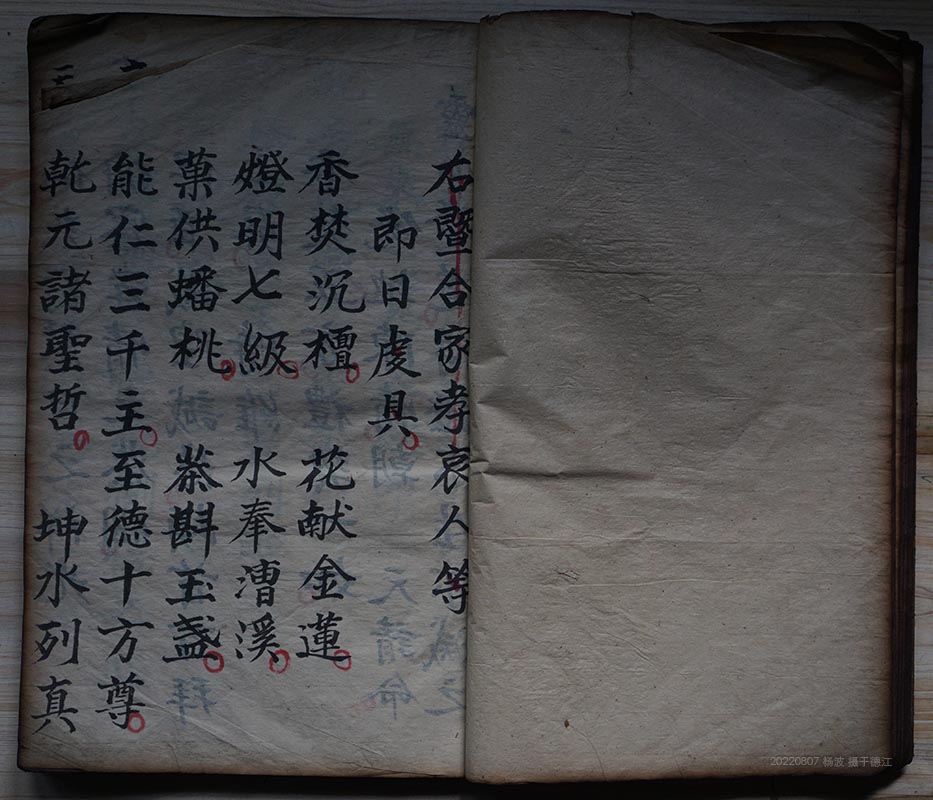 右暨合家孝哀人等
即日虔具
香焚沉檀 花献金蓮
燈明七級 水奉漕溪
菓供蟠桃 茶斟玉盞
能仁三千主 至德十方尊
乾元諸聖哲 坤水列真
20220807 杨波 摄于德江